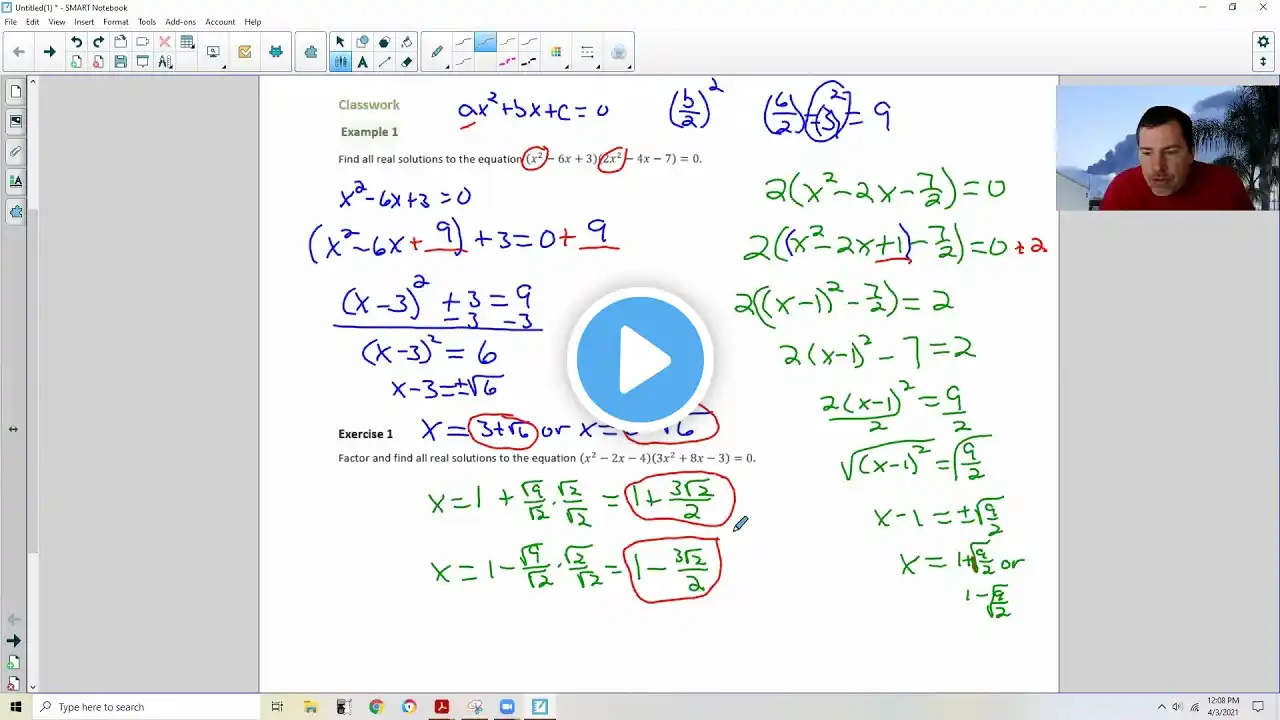 Untitled(1) * - SMART Notebook
File Edit View Insert Format Tools Add-ons Account Help
Classwork
ax²+bx+c=0 (b/2)² (6/2) (-3)² = 9
Example 1
Find all real solutions to the equation (x² − 6x + 3)(2x² − 4x − 7) = 0.
x²-6x+3=0
(x²-6x+9)+3=0+9
(x-3)²+3=9
-3 -3
(x-3)²=6
x-3=±√6
x=3+√6 or x= √6
2(x²-2x-7/2)=0
2((x²-2x+1)-7/2)=0+2
2((x-1)²-7/2)=2
2(x-1)²-7=2
2(x-1)²/2=9/2
√(x-1)²=√9/2
x-1=±√9/2
x=1+√9/2 or
1-√9/2
Exercise 1
Factor and find all real solutions to the equation (x² − 2x − 4)(3x² + 8x − 3) = 0.
x=1+√9/√2·√2/√2=1+3√2/2
x=1-√9/√2·√2/√2=1-3√2/2
Type here to search
12:08 PM
4/3/2021